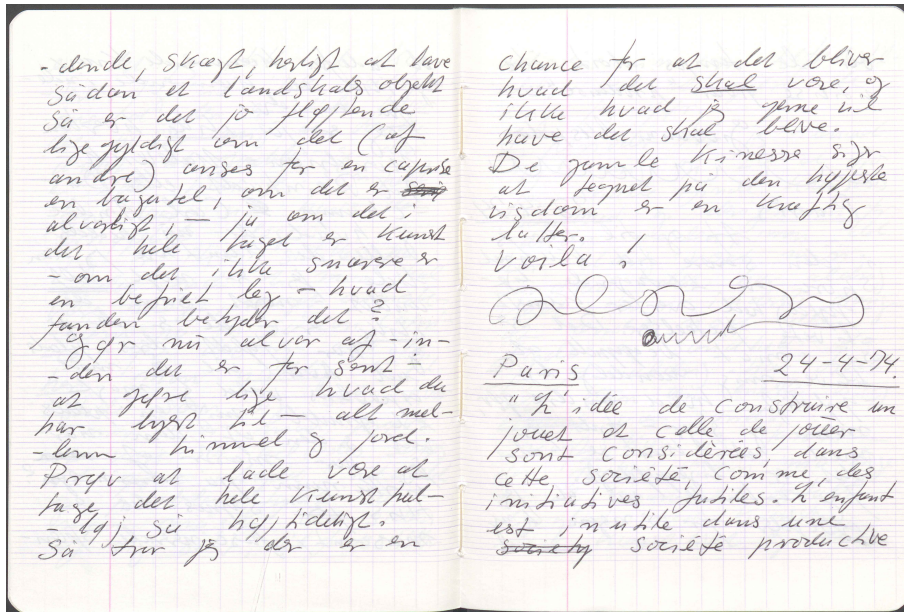 - dende, skægt, herligt at have
sådan et landskabs objekt
så er det jo fløjtende
ligegyldigt om det (af
andre) anses for en caprise
en bagatel, om det er
alvorligt, — ja om det i
det hele taget er kunst
- om det ikke snarere er
en befriet leg — hvad
fanden betyder det?
Gør nu alvor af - in-
- den det er for sent -
at gøre lige hvad du
har lyst til — alt mel-
- lem himmel og jord.
Prøv at lade være at
tage det hele kunst hal-
- løj så højtideligt.
Så tror jeg der er en
chance for at det bliver
hvad det skal være, og
ikke hvad jeg gerne vil
have det skal blive.
De gamle Kinesere siger
at tegnet på den højeste
visdom er en kraftig
latter.
Voila!
Paris 24-4-74.
"L'idée de construire un
jouet et celle de joüer
sont considérées, dans
cette société, comme, des
initiatives futiles. L'enfant
est inutile dans une
society société productive